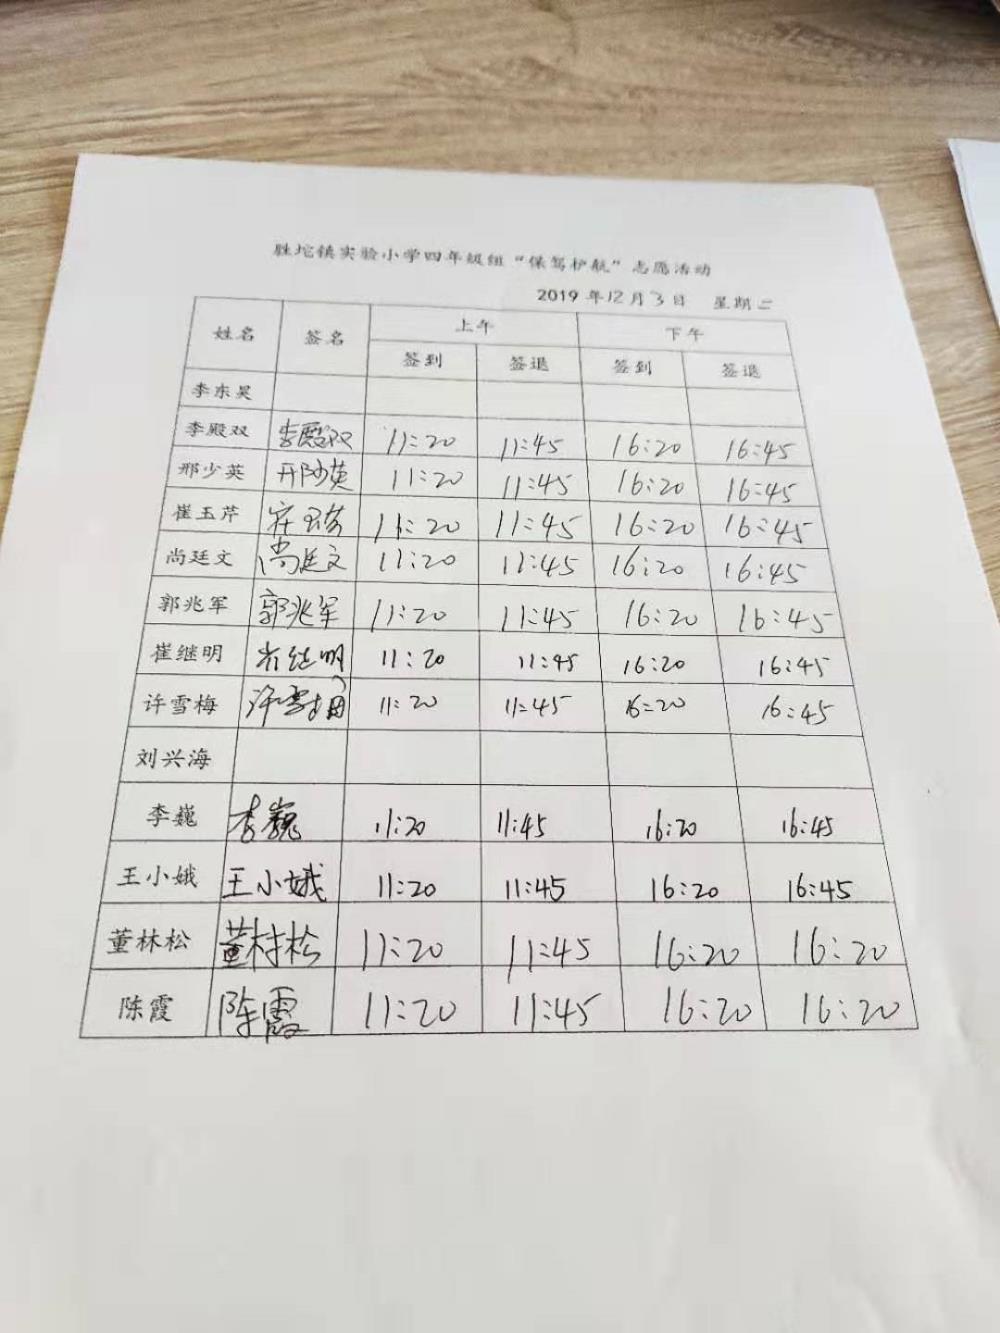 胜坨镇实验小学四年级组“保驾护航”志愿活动
2019 年12月3日 星期二
姓名 签名 上午 下午
签到 签退 签到 签退
李东昊
李殿双 李殿双 11:20 11:45 16:20 16:45
邢少英 邢少英 11:20 11:45 16:20 16:45
崔玉芹 崔玉芹 11:20 11:45 16:20 16:45
尚廷文 尚廷文 11:20 11:45 16:20 16:45
郭兆军 郭兆军 11:20 11:45 16:20 16:45
崔继明 崔继明 11:20 11:45 16:20 16:45
许雪梅 许雪梅 11:20 11:45 16:20 16:45
刘兴海
李巍 李巍 11:20 11:45 16:20 16:45
王小娥 王小娥 11:20 11:45 16:20 16:45
董林松 董林松 11:20 11:45 16:20 16:20
陈霞 陈霞 11:20 11:45 16:20 16:20